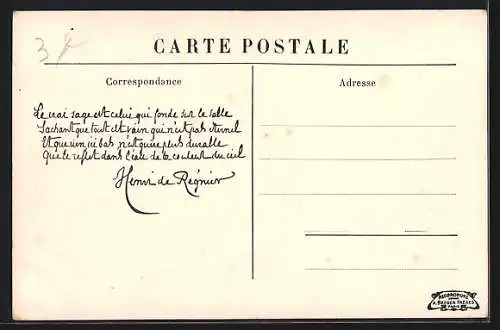 3f
CARTE POSTALE
Correspondance
Adresse
Le vrai sage est celui qui fonde sur le sable
Sachant que tout est vain qui n'est pas éternel
Et que rien ici bas n'est guère plus durable
Que le reflet dans l'eau de la couleur du ciel
Henri de Régnier
A. BREGER FRÈRES
PARIS